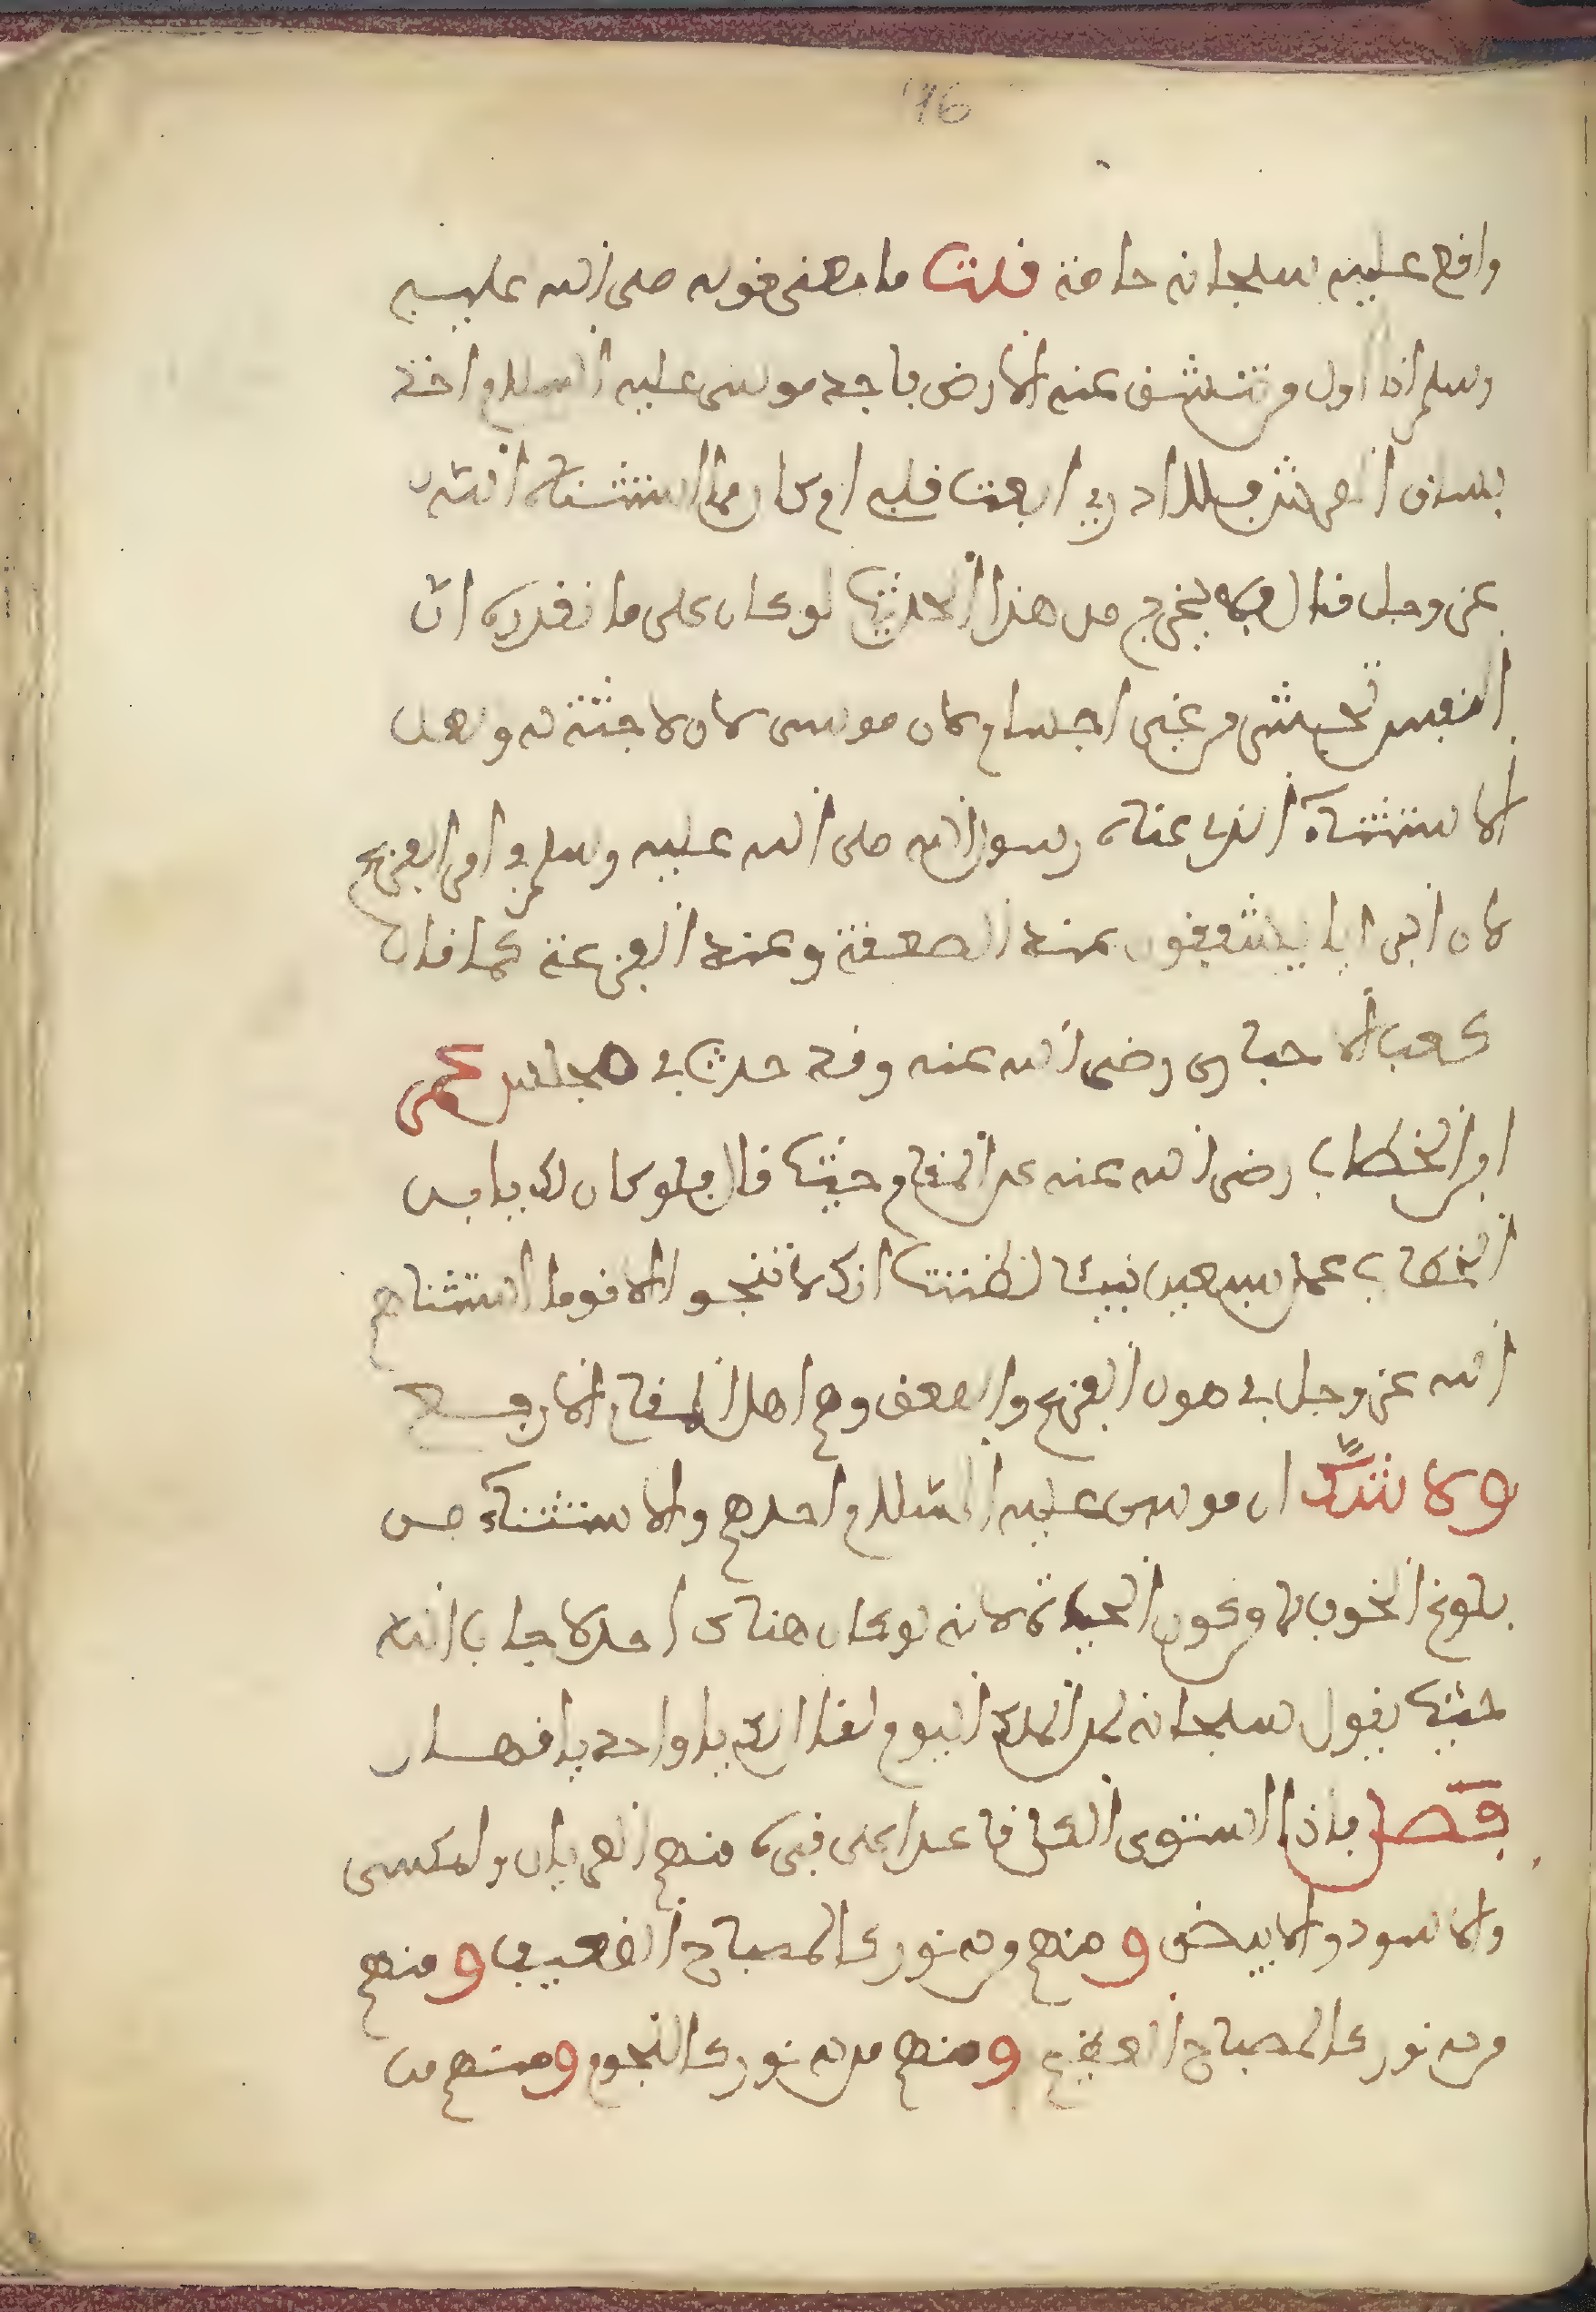 16
واقع عليه سبحانه خاصة قلت ما معنى قوله صلى الله عليه
وسلم انا اول من تنشق عنه الارض فاجد موسى عليه السلام اخذ
بساق العرش فلا ادري ابعث قبلي ام كان مما استثناه الله
عز وجل قال فيه يخرج من هذا الحديث لو كان على ما نقدره ان
النفس تحشى من غير اجسام كان موسى كان لا جثة له وهل
الاستثناء الذي عناه رسول الله صلى الله عليه وسلم في امر الفزع
كان البرايا يشفقون عند الصعقة وعند الفزعة كما قال
كعب الاحبار رضي الله عنه وقد حدث في مجلس عمر
ابن الخطاب رضي الله عنه عن المقام حيث قال فلو كان لك يا بن
الخطاب عمل سبعين نبيا لظننت انك لا تنجو الا قوما استثناهم
الله عز وجل في هول الفزع والصعق وهم اهل المقام الاربع
ولا شك ان موسى عليه السلام احدهم والاستثناء من
بلوغ الخوف لا من كون الحياة لانه لو كان هناك احد لاجاب الله
حيث يقول سبحانه لمن الملك اليوم لقال لك يا واحد يا قهار
فصل فاذا استوى الكل قاعدا على قبره منهم العريان والمكسي
والاسود والابيض ومنهم من له نور كالمصباح الضعيف ومنهم
من له نور كالمصباح العظيم ومنهم من له نور كالنجوم ومنهم من